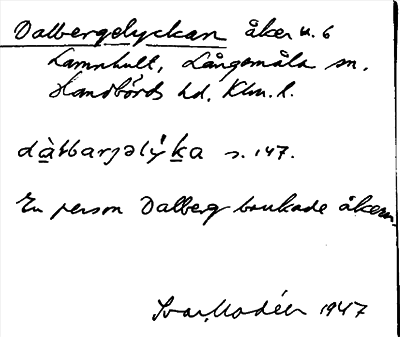 Dalbergelyckan åker u. 6
Lamnhult, Långemåla sn.
Handbörds hd. Klm. l.
dàlbarjəlýka s. 147.
En person Dalberg brukade åkern.
Ivar Modéer 1947